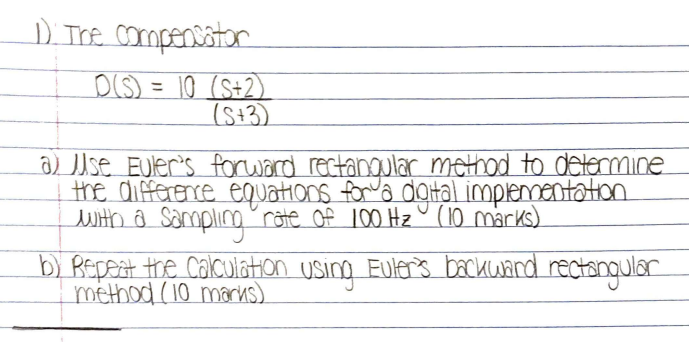 1) The compensator
D(S) = 10 (S+2)
(S+3)
a) Use Euler's forward rectangular method to determine
the difference equations for a digital implementation
with a sampling rate of 100 Hz (10 marks)
b) Repeat the calculation using Euler's backward rectangular
method (10 marks)